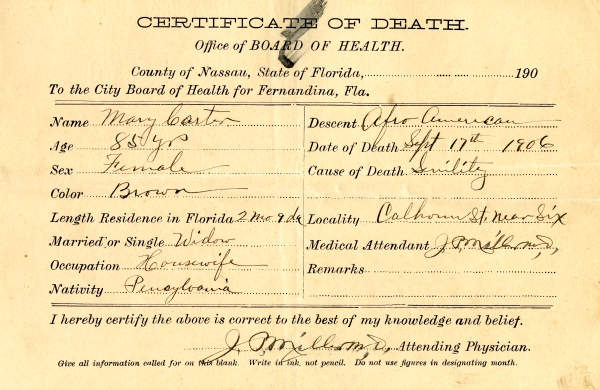 CERTIFICATE OF DEATH.
Office of BOARD OF HEALTH.
County of Nassau, State of Florida, 190
To the City Board of Health for Fernandina, Fla.
Name Mary Carter
Age 85 yrs
Sex Female
Color Brown
Length Residence in Florida 2 mo 9 da
Married or Single Widow
Occupation Housewife
Nativity Pensylvania
Descent Afro American
Date of Death Sept 17th 1906
Cause of Death Senility
Locality Calhoun St. near Six
Medical Attendant J. P. Mills M.D.,
Remarks
I hereby certify the above is correct to the best of my knowledge and belief.
J. P. Mills M.D., Attending Physician.
Give all information called for on this blank. Write in ink, not pencil. Do not use figures in designating month.